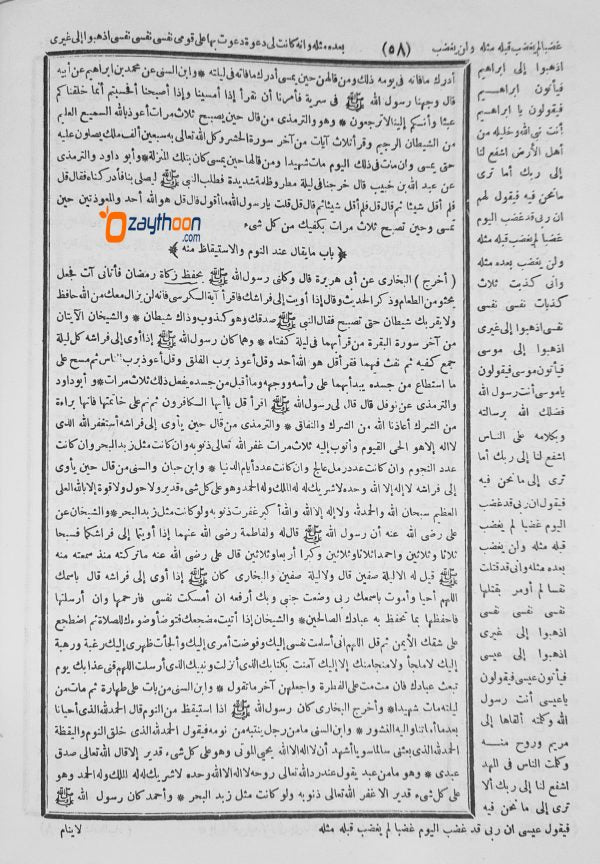 غضبا لم يغضب قبله مثله ولن يغضب (٥٨) بعده مثله وانه كانت لى دعوة دعوت بها على قومى نفسى نفسى نفسى اذهبوا إلى غيرى
أدرك مافاته فى يومه ذلك ومن قالهن حين يمسى أدرك مافاته فى ليلته * وابن السنى عن محمد بن ابراهيم عن أبيه
قال وجهنا رسول الله ﷺ فى سرية فأمرنا أن نقرأ إذا أمسينا وإذا أصبحنا أفحسبتم أنما خلقناكم
عبثا وأنكم إلينا لاترجعون * وهو والترمذى من قال حين يصبح ثلاث مرات أعوذ بالله السميع العليم
من الشيطان الرجيم وقرأ ثلاث آيات من آخر سورة الحشر وكل الله تعالى به سبعين ألف ملك يصلون عليه
حتى يمسى وان مات فى ذلك اليوم مات شهيدا ومن قالها حين يمسى كان بتلك المنزلة * وأبو داود والترمذى
عن عبد الله بن خبيب قال خرجنا فى ليلة مطر وظلمة شديدة فطلب النبى ﷺ ليصلى بنا فأدركناه فقال قل
فلم أقل شيئا ثم قال قل فلم أقل شيئا ثم قال قل قلت يارسول الله ما أقول قال قل هو الله أحد والمعوذتين حين
تمسى وحين تصبح ثلاث مرات يكفيك من كل شىء
Ozaythoon.com
﴿ باب مايقال عند النوم والاستيقاظ منه ﴾
( أخرج ) البخارى عن أبى هريرة قال وكلنى رسول الله ﷺ بحفظ زكاة رمضان فأتانى آت فجعل
يحثو من الطعام وذكر الحديث وقال إذا أويت إلى فراشك فاقرأ آية الكرسى فانه لن يزال معك من الله حافظ
ولا يقربك شيطان حتى تصبح فقال النبى ﷺ صدقك وهو كذوب وذاك شيطان * والشيخان الآيتان
من آخر سورة البقرة من قرأ بهما فى ليلة كفتاه * وهما كان رسول الله ﷺ إذا أوى إلى فراشه كل ليلة
جمع كفيه ثم نفث فيهما فقرأ قل هو الله أحد وقل أعوذ برب الفلق وقل أعوذ برب الناس ثم مسح على
ما استطاع من جسده يبدأ بهما على رأسه ووجهه وما أقبل من جسده يفعل ذلك ثلاث مرات * وأبو داود
والترمذى عن نوفل قال قال لى رسول الله ﷺ اقرأ قل يا أيها الكافرون ثم نم على خاتمتها فانها براءة
من الشرك أعاذنا الله من الشرك والنفاق * والترمذى من قال حين يأوى إلى فراشه أستغفر الله الذى
لا اله إلا هو الحى القيوم وأتوب إليه ثلاث مرات غفر الله تعالى ذنوبه وان كانت مثل زبد البحر وان كانت
عدد النجوم وان كانت عدد رمل عالج وان كانت عدد أيام الدنيا * وابن حبان والسنى من قال حين يأوى
إلى فراشه لا إله إلا الله وحده لا شريك له له الملك وله الحمد وهو على كل شىء قدير ولا حول ولا قوة إلا بالله العلى
العظيم سبحان الله والحمد لله ولا إله إلا الله والله أكبر غفرت ذنوبه ولو كانت مثل زبد البحر * والشيخان عن
على رضى الله عنه أن رسول الله ﷺ قال له ولفاطمة رضى الله عنهما إذا أويتما إلى فراشكما فسبحا
ثلاثا وثلاثين واحمدا ثلاثا وثلاثين وكبرا أربعا وثلاثين قال على رضى الله عنه ماتركته منذ سمعته منه
ﷺ قيل له ولا ليلة صفين قال ولا ليلة صفين والبخارى كان ﷺ إذا أوى إلى فراشه قال باسمك
اللهم أحيا وأموت باسمك ربى وضعت جنبى وبك أرفعه ان أمسكت نفسى فارحمها وان أرسلتها
فاحفظها بما تحفظ به عبادك الصالحين * والشيخان إذا أتيت مضجعك فتوضأ وضوءك للصلاة ثم اضطجع
على شقك الأيمن ثم قل اللهم انى أسلمت نفسى إليك وفوضت أمرى إليك وألجأت ظهرى إليك رغبة ورهبة
إليك لا ملجأ ولا منجا منك إلا إليك آمنت بكتابك الذى أنزلت ونبيك الذى أرسلت اللهم قنى عذابك يوم
تبعث عبادك فان مت مت على الفطرة واجعلهن آخر ماتقول * وابن السنى من بات على طهارة ثم مات من
ليلته مات شهيدا * وأخرج البخارى كان رسول الله ﷺ إذا استيقظ من النوم قال الحمد لله الذى أحيانا
بعد ما أماتنا واليه النشور * وابن السنى مامن رجل ينتبه من نومه فيقول الحمد لله الذى خلق النوم واليقظة
الحمد لله الذى بعثنى سالما سويا أشهد أن لا اله إلا الله يحيى الموتى وهو على كل شىء قدير إلا قال الله تعالى صدق
عبدى * وهو مامن عبد يقول عند رد الله تعالى روحه لا اله إلا الله وحده لا شريك له له الملك وله الحمد وهو
على كل شىء قدير الا غفر الله تعالى ذنوبه ولو كانت مثل زبد البحر * وأحمد كان رسول الله ﷺ
لاينام
اذهبوا إلى ابراهيم
فيأتون ابراهيم
فيقولون يا ابراهيم
أنت نبى الله وخليله من
أهل الأرض اشفع لنا
إلى ربك أما ترى
مانحن فيه فيقول لهم
ان ربى قد غضب اليوم
غضبا لم يغضب قبله مثله
ولن يغضب بعده مثله
وانى كذبت ثلاث
كذبات نفسى نفسى
نفسى اذهبوا إلى غيرى
اذهبوا إلى موسى
فيأتون موسى فيقولون
ياموسى أنت رسول الله
فضلك الله برسالته
وبكلامه على الناس
اشفع لنا إلى ربك أما
ترى إلى مانحن فيه
فيقول ان ربى قد غضب
اليوم غضبا لم يغضب
قبله مثله ولن يغضب
بعده مثله وانى قد قتلت
نفسا لم أومر بقتلها
نفسى نفسى نفسى
اذهبوا إلى غيرى
اذهبوا إلى عيسى
فيأتون عيسى فيقولون
ياعيسى أنت رسول
الله وكلمته ألقاها إلى
مريم وروح منه
وكلمت الناس فى المهد
اشفع لنا إلى ربك ألا
ترى إلى مانحن فيه
فيقول عيسى ان ربى قد غضب اليوم غضبا لم يغضب قبله مثله